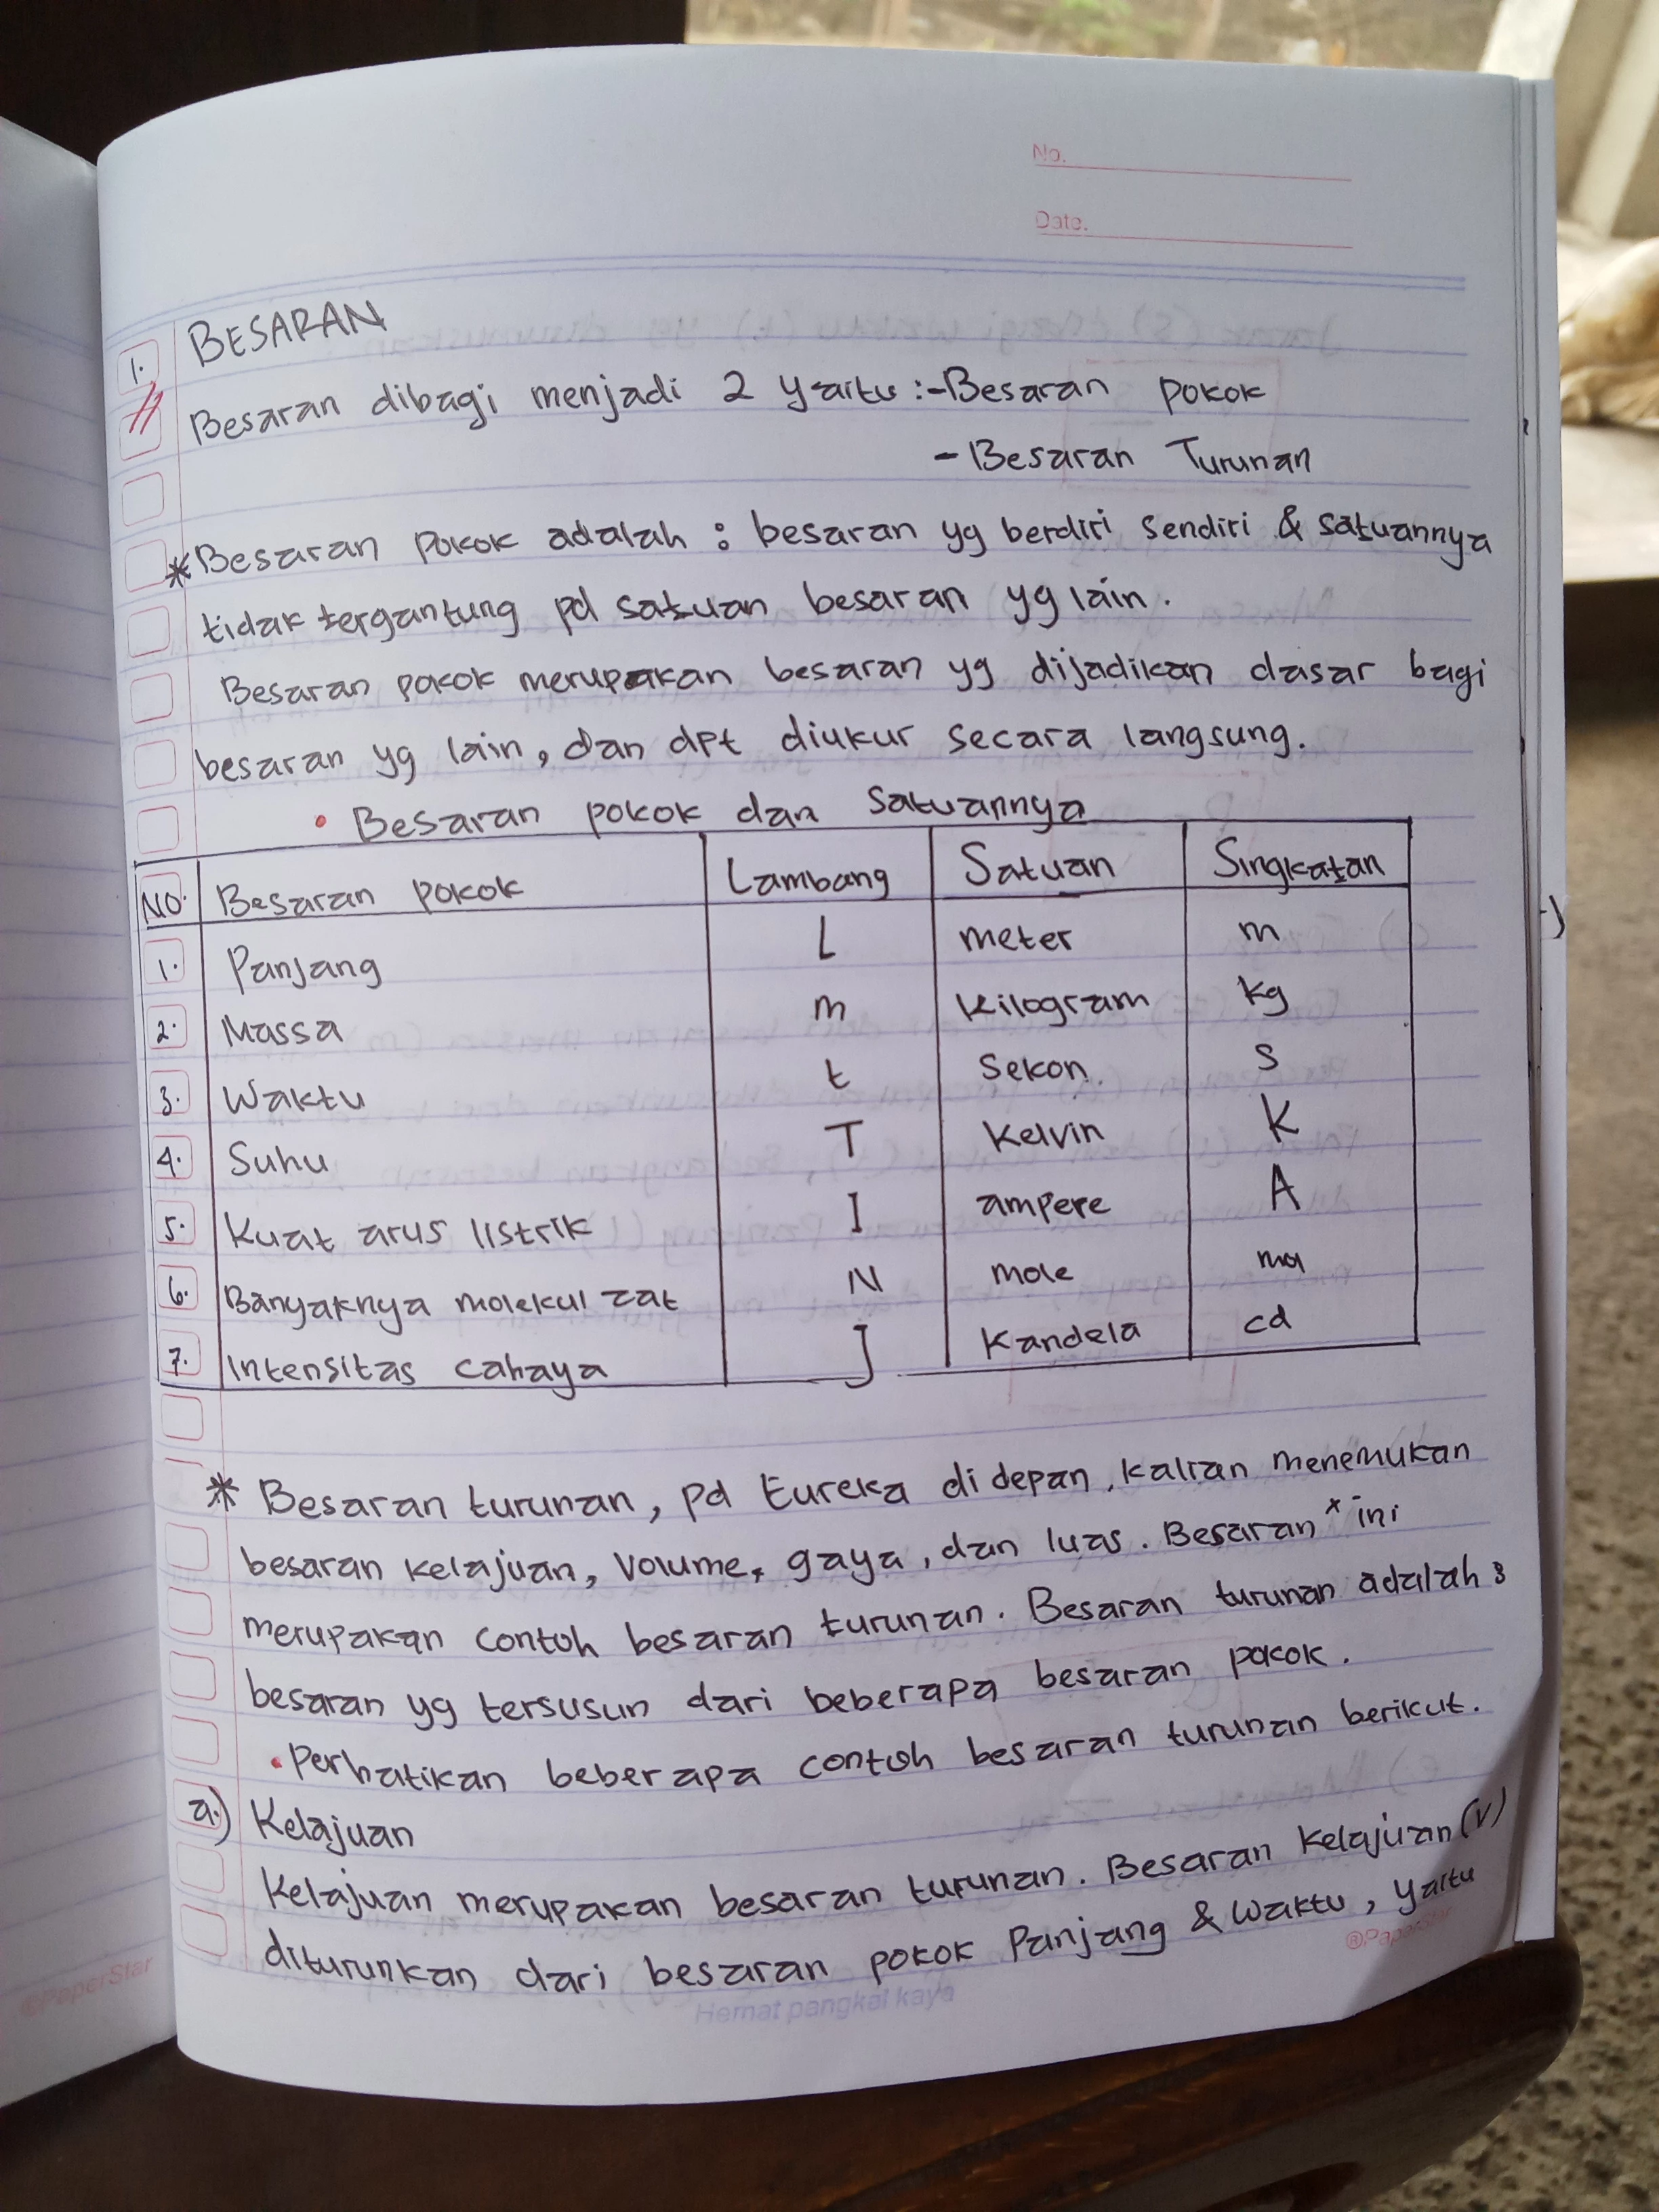 No.
Date.
1. BESARAN
Besaran dibagi menjadi 2 yaitu :-Besaran pokok
- Besaran Turunan
* Besaran pokok adalah : besaran yg berdiri sendiri & satuannya
tidak tergantung pd satuan besaran yg lain.
Besaran pokok merupakan besaran yg dijadikan dasar bagi
besaran yg lain, dan dpt diukur secara langsung.
• Besaran pokok dan Satuannya
NO. Besaran pokok Lambang Satuan Singkatan
1. Panjang L meter m
2. Massa m Kilogram kg
3. Waktu t Sekon. s
4. Suhu T Kelvin K
5. Kuat arus listrik I ampere A
6. Banyaknya molekul zat N mole mol
7. Intensitas cahaya J Kandela cd
* Besaran turunan, pd Eureka di depan, kalian menemukan
besaran kelajuan, Volume, gaya, dan luas. Besaran x ini
merupakan contoh besaran turunan. Besaran turunan adalah :
besaran yg tersusun dari beberapa besaran pokok.
• Perhatikan beberapa contoh besaran turunan berikut.
a.) Kelajuan
Kelajuan merupakan besaran turunan. Besaran Kelajuan (v)
diturunkan dari besaran pokok Panjang & Waktu, yaitu
©PaperStar
Hemat pangkal kaya